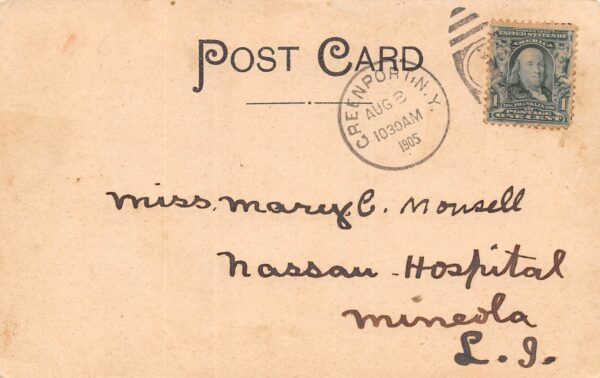 POST CARD
GREENPORT, N.Y.
AUG 8
1030AM
1905
UNITED STATES OF
AMERICA
FRANKLIN
1 1
POSTAGE
ONE CENT
Miss. Mary. C. Monsell
Nassau - Hospital
Mineola
L. I.